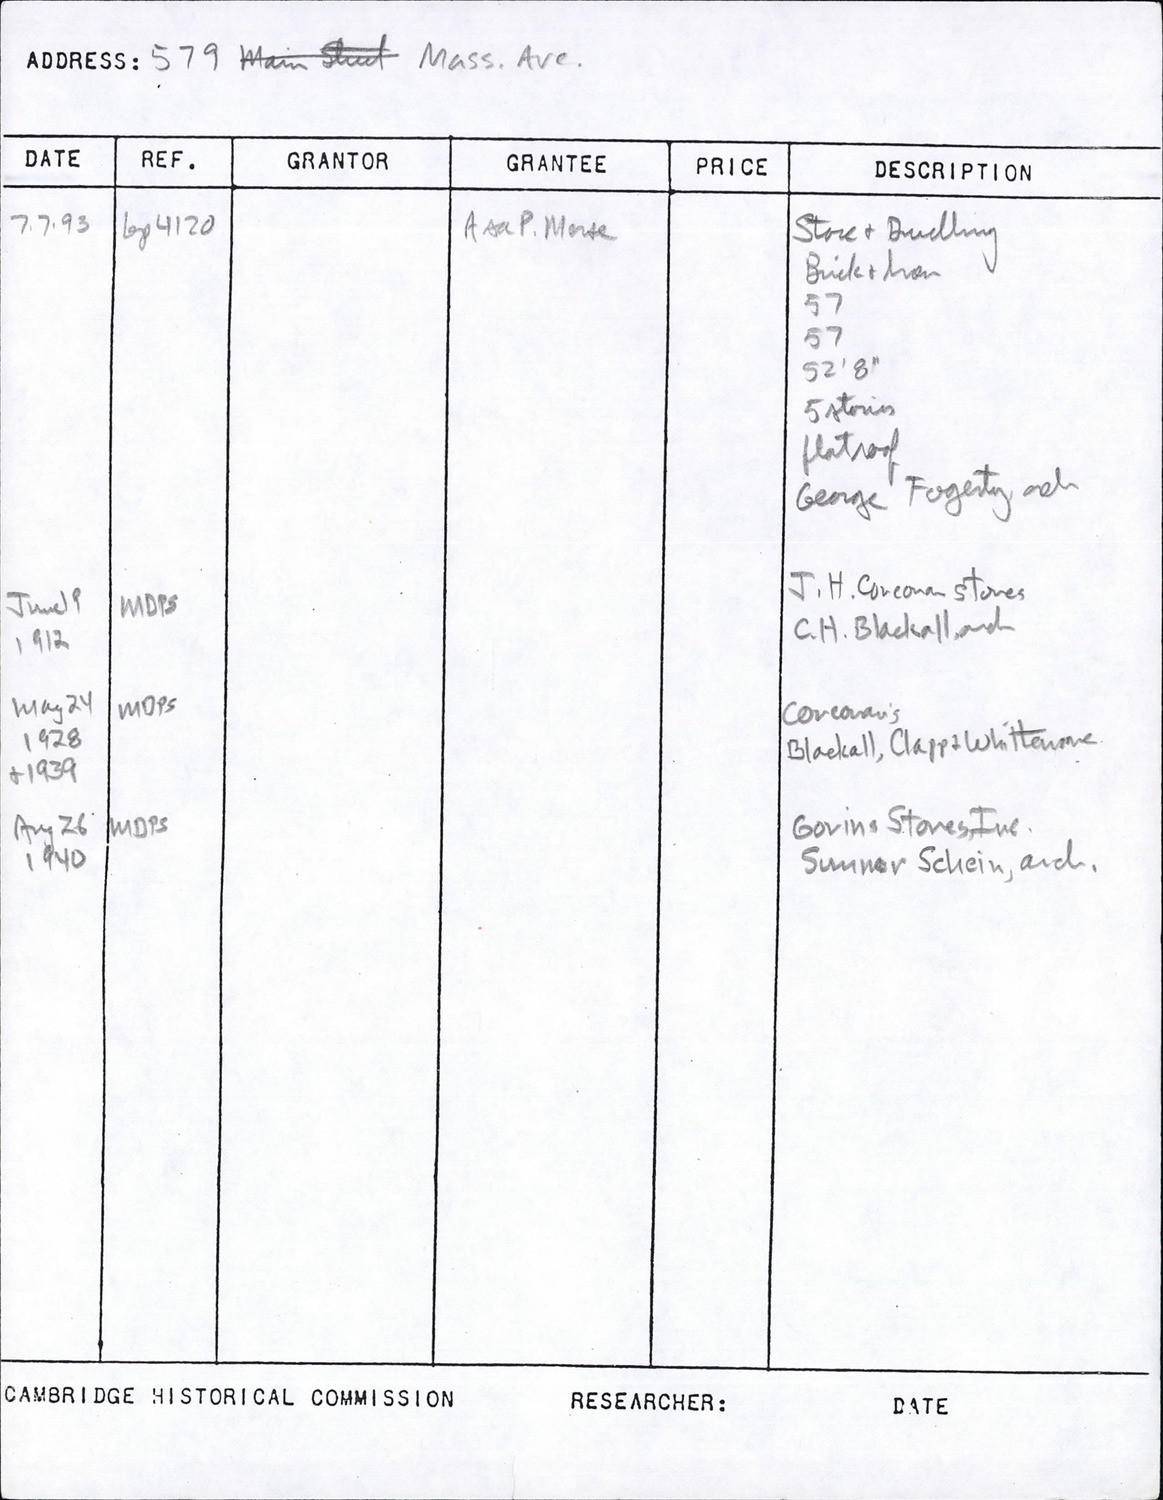 ADDRESS: 579 Main Street Mass. Ave.
DATE REF. GRANTOR GRANTEE PRICE DESCRIPTION
7.7.93 bp 4120 Asa P. Morse Store + Dwelling
Brick + Iron
57
57
52'8"
5 stories
flat roof
George Fogerty, arch
June 19 MDPS J.H. Corcoran Stores
1912 C.H. Blackall, arch
May 24 MDPS Corcoran's
1928 Blackall, Clapp & Whittemore
+ 1939
Aug 26 MDPS Gorins Stores, Inc.
1940 Sumner Schein, arch.
CAMBRIDGE HISTORICAL COMMISSION RESEARCHER: DATE